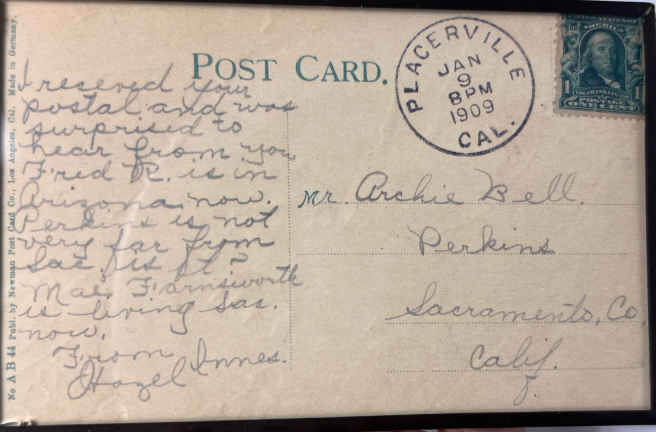 POST CARD.
PLACERVILLE
JAN
9
8 PM
1909
CAL.
1
No A B 44 Publ. by Newman Post Card Co., Los Angeles, Cal. Made in Germany.
I reseved your
postal and was
surprised to
hear from you
Fred R. is in
Arizona now.
Perkins is not
very far from
Sac, is it?
Mae Farnsworth
is living Sac.
now.
From
Hazel Innes.
Mr. Archie Bell.
Perkins
Sacramento, Co,
Calif.